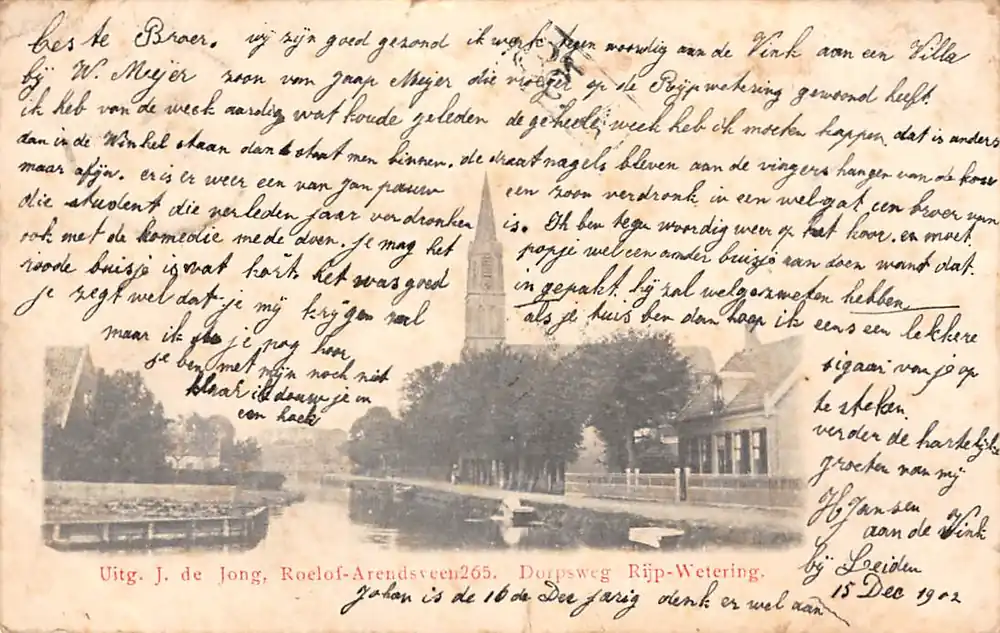 beste Broer. wij zijn goed gezond ik werk tegen woordig aan de Vink aan een Villa
bij W. Meijer zoon van Jaap Meijer die vroeger op de Rijpwetering gewoond heeft.
ik heb van de week aardig wat koude geleden de geheele week heb ik moeten kappen dat is anders
dan in de Winkel staan dan staat men binnen. de draatnagels bleven aan de vingers hangen van de kou
maar afijn. er is er weer een van Jan pauw
een zoon verdronk in een welgat een broer van
die student die verleden jaar verdronken
is. Ik ben tegen woordig weer op het koor. en moet
ook met de komedie mede doen. je mag het
popje wel een ander buisje aan doen want dat
roode buisje is wat kort. het was goed
in gepakt. hij zal wel gezweten hebben
je zegt wel dat je mij krijgen zal
als je tuis ben dan hoop ik eens een lekkere
maar ik je nog hoor
sigaar van je op
je ben met mijn noch niet
te steken.
klaar ik douw je in
een hoek
verder de hartelijke
groeten van mij
H Jansen
aan de Vink
bij Leiden
15 Dec 1902
Uitg. J. de Jong, Roelof-Arendsveen 265. Dorpsweg Rijp-Wetering.
Johan is de 16 de Dec jarig denk er wel aan